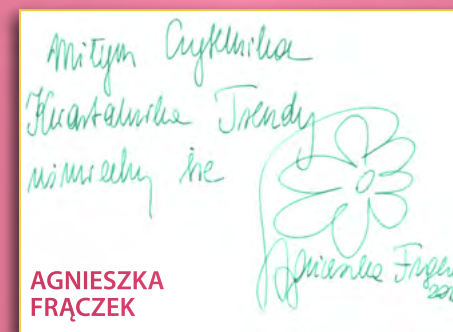 Miłym Czytelnikom
Kwartalnika Trendy
uśmiechy śle
Agnieszka
AGNIESZKA
FRĄCZEK